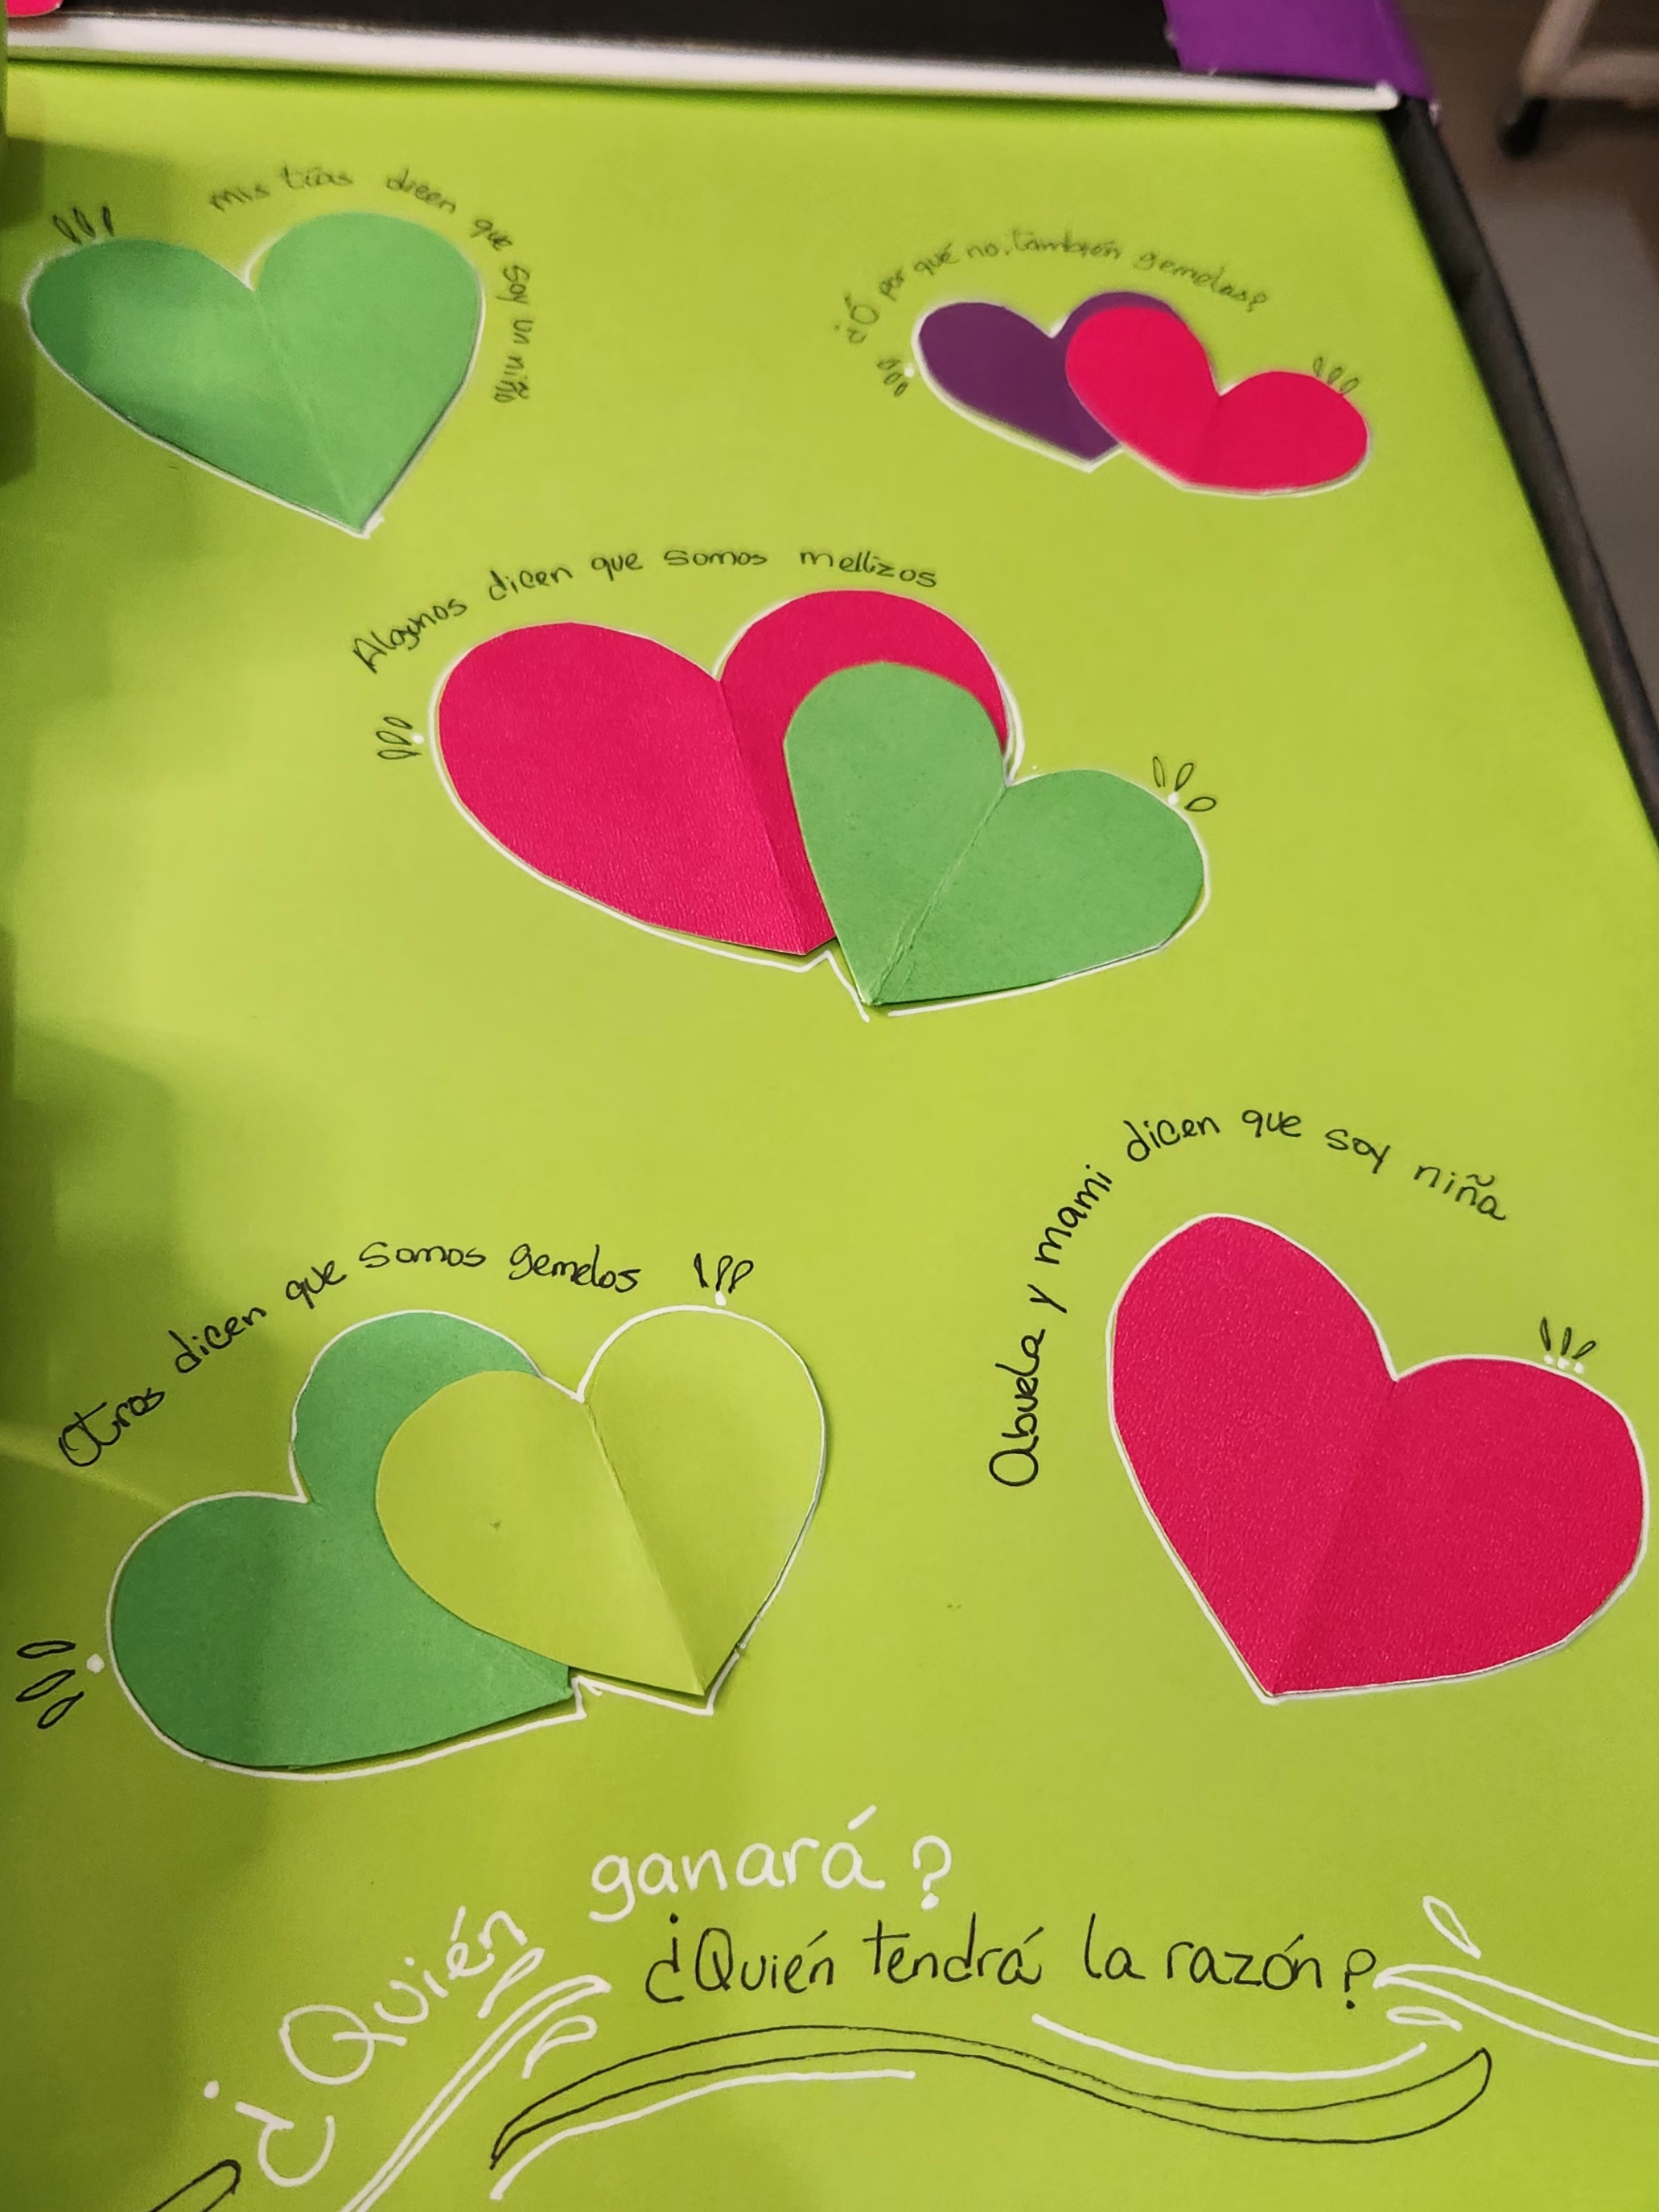 mis tías dicen que soy un niño
¿Ó por qué no, también gemelas?
Algunos dicen que somos mellizos
Otros dicen que somos gemelos
Abuela y mami dicen que soy niña
¿Quién ganará?
¿Quién tendrá la razón?